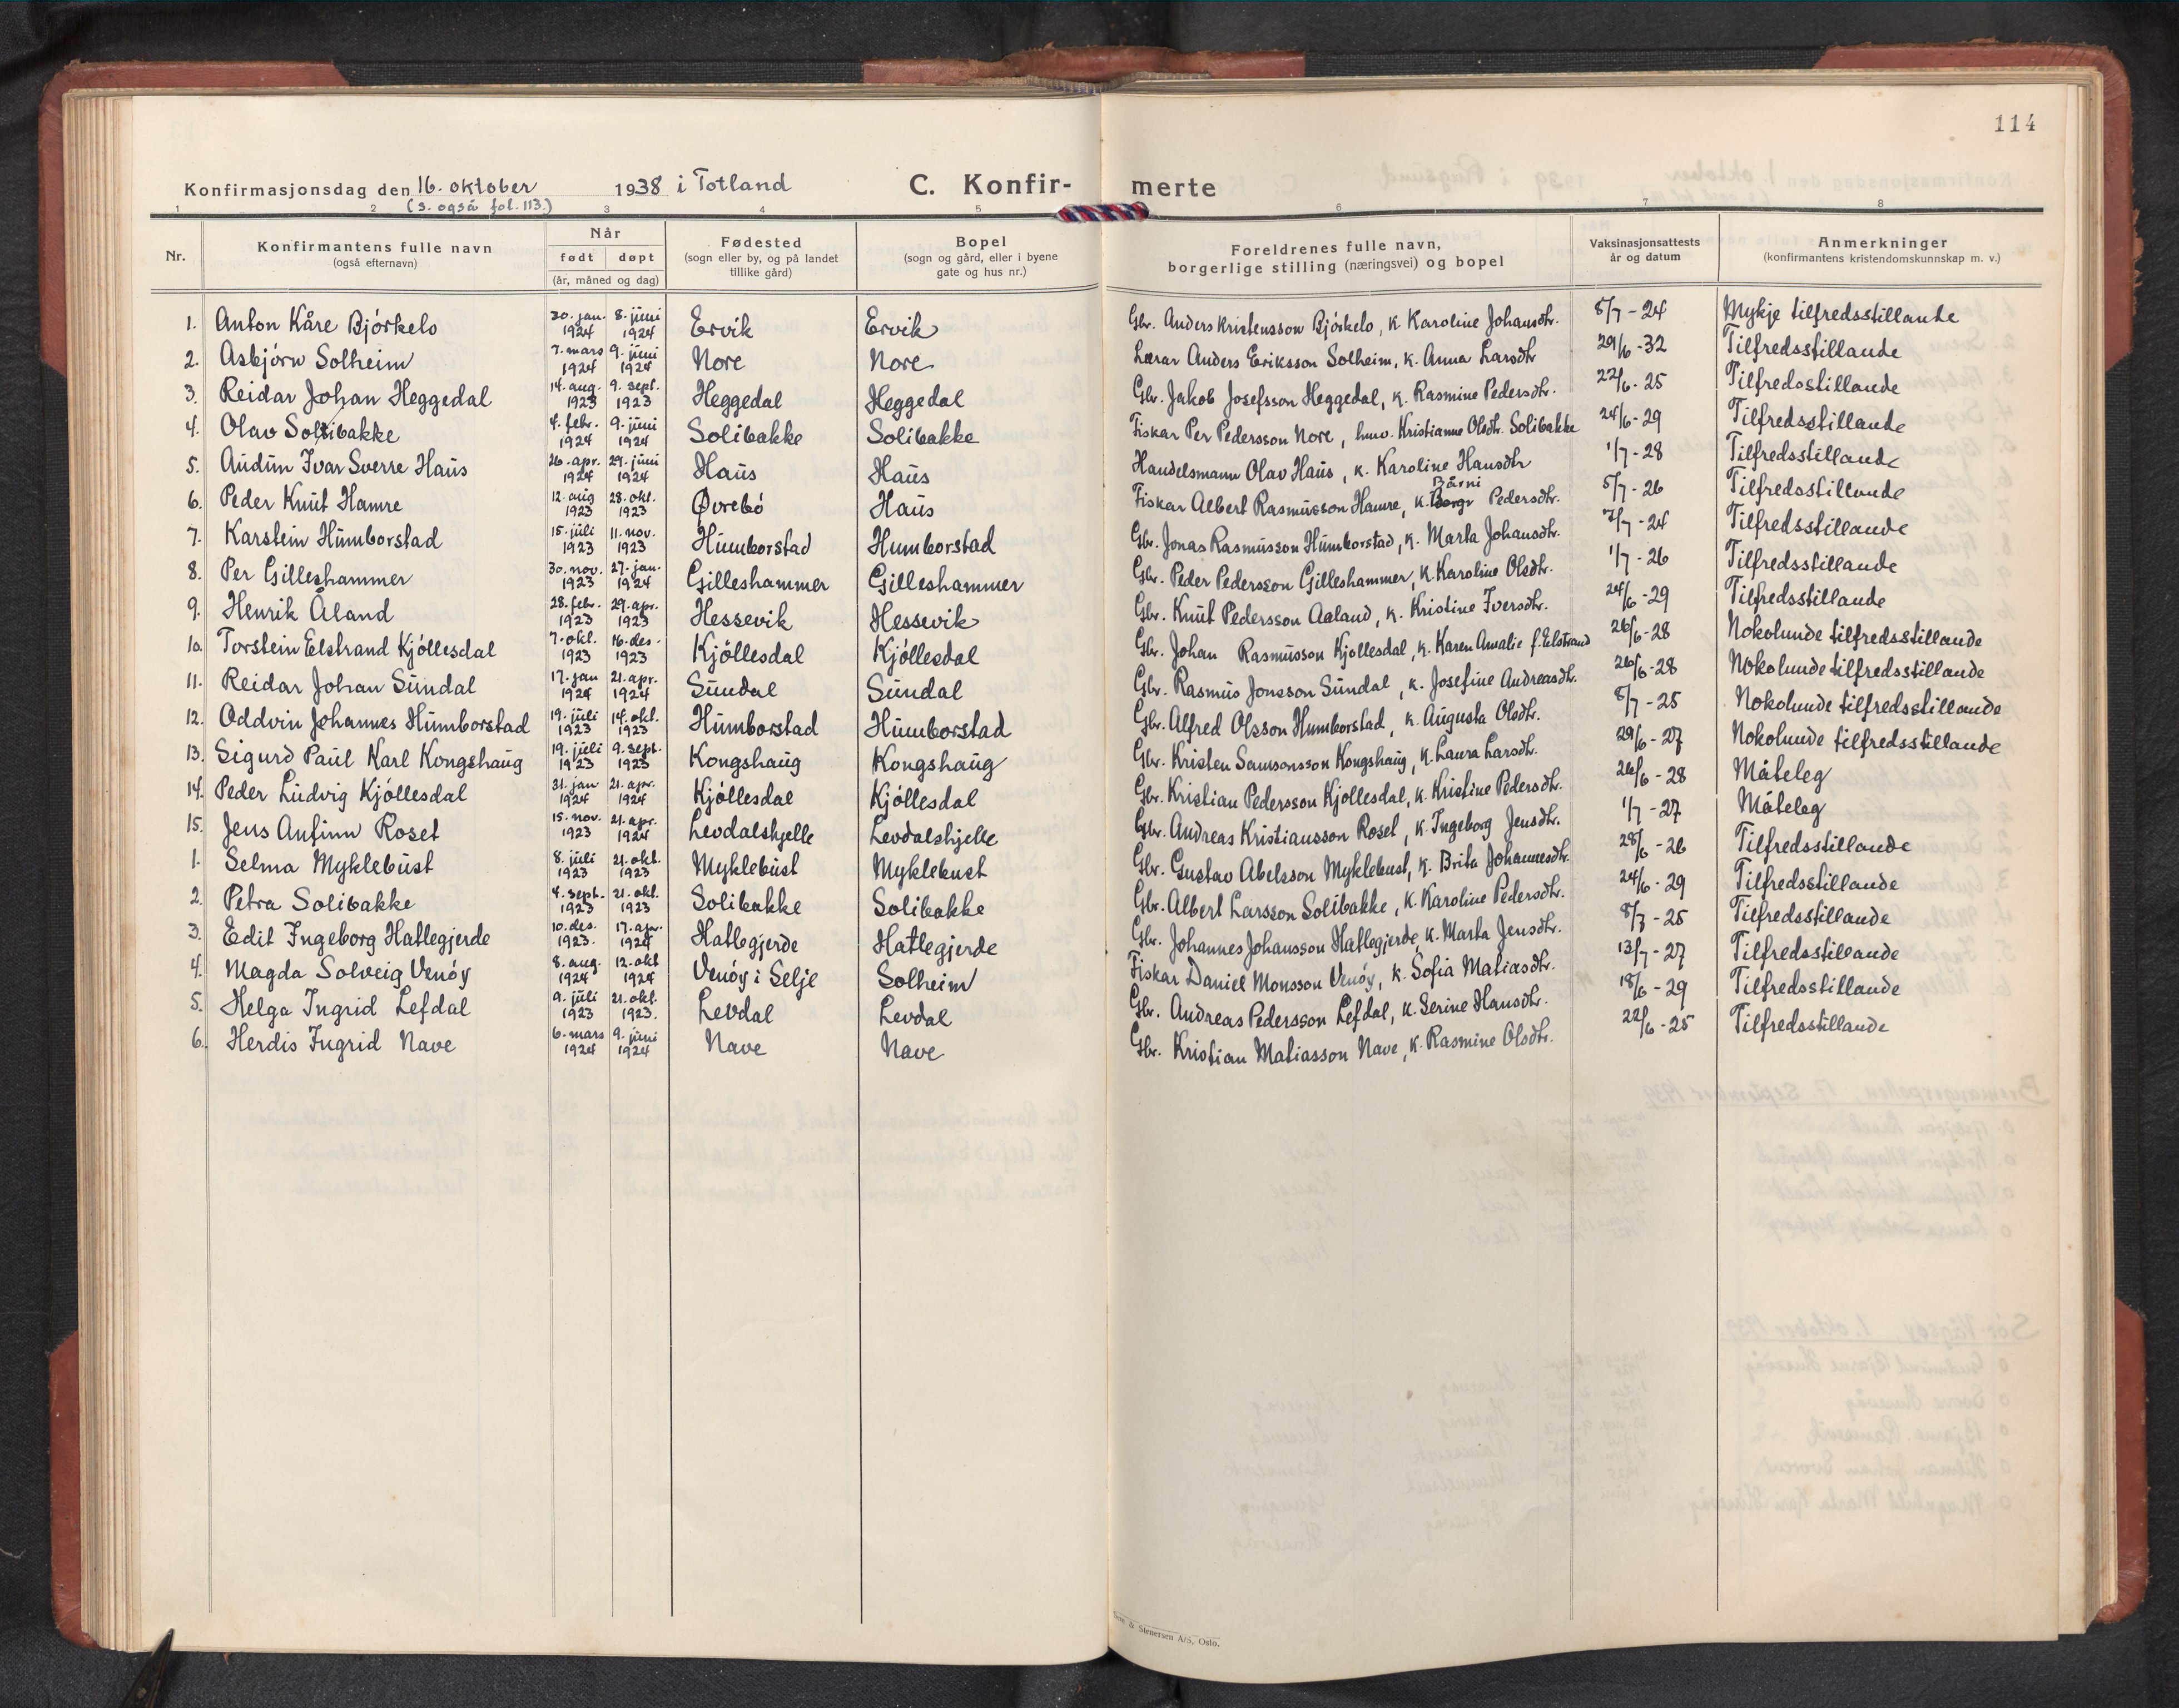 114
Konfirmasjonsdag den 16. oktober 1938 i Totland C. Konfir- merte
(s. også fol. 113.)
1 2 3 4 5 6 7 8
Nr. Konfirmantens fulle navn (også efternavn) Når født døpt (år, måned og dag) Fødested (sogn eller by, og på landet tillike gård) Bopel (sogn og gård, eller i byene gate og hus nr.) Foreldrenes fulle navn, borgerlige stilling (næringsvei) og bopel Vaksinasjonsattests år og datum Anmerkninger (konfirmantens kristendomskunnskap m. v.)
1. Anton Kåre Bjórkelo 30. jan. 1924 8. juni 1924 Ervik Ervik Gbr. Anders Kristensson Bjórkelo, k. Karoline Johansdtr. 8/7 - 24 Mykje tilfredsstillande
2. Asbjórn Solheim 7. mars 1924 9. juni 1924 Nore Nore Lærar Anders Eriksson Solheim, k. Anna Larsdtr 29/6 - 32 Tilfredsstillande
3. Reidar Johan Heggedal 14. aug. 1923 9. sept. 1923 Heggedal Heggedal Gbr. Jakob Josefsson Heggedal, k. Rasmine Pedersdtr. 22/6 - 25 Tilfredsstillande
4. Olav Solibakke 4. febr. 1924 9. juni 1924 Solibakke Solibakke Fiskar Per Pedersson Nore, huv. Kristianne Olsdtr. Solibakke 24/6 - 29 Tilfredsstillande
5. Audun Ivar Sverre Haus 26. apr. 1924 29. juni 1924 Haus Haus Handelsmann Olav Haus, k. Karoline Hansdtr 1/7 - 28 Tilfredsstillande
6. Peder Knut Hamre 12. aug 1923 28. okt. 1923 Øvrebó Haus Fiskar Albert Rasmusson Hamre, k. Bårni Pedersdtr. 5/7 - 26 Tilfredsstillande
7. Karstein Humborstad 15. juli 1923 11. nov. 1923 Humborstad Humborstad Gbr. Jonas Rasmusson Humborstad, k. Marta Johansdtr. 7/7 - 24 Tilfredsstillande
8. Per Gilleshammer 30. nov. 1923 27. jan. 1924 Gilleshammer Gilleshammer Gbr. Peder Pedersson Gilleshammer, k. Karoline Olsdtr. 1/7 - 26 Tilfredsstillande
9. Henrik Åland 28. febr. 1923 29. apr. 1923 Hessevik Hessevik Gbr. Knut Pedersson Aaland, k. Kristine Iversdtr. 24/6 - 29 Tilfredsstillande
10. Torstein Elstrand Kjóllesdal 7. okt. 1923 16. des. 1923 Kjóllesdal Kjóllesdal Gbr. Johan Rasmusson Kjollesdal, k. Karen Amalie f. Elstrand 26/6 - 28 Nokolunde tilfredsstillande
11. Reidar Johan Sundal 17. jan 1924 21. apr. 1924 Sundal Sundal Gbr. Rasmus Jonsson Sundal, k. Josefine Andreasdtr. 26/6 - 28 Nokolunde tilfredsstillande
12. Oddvin Johannes Humborstad 19. juli 1923 14. okt. 1923 Humborstad Humborstad Gbr. Alfred Olsson Humborstad, k. Augusta Olsdtr. 8/7 - 25 Nokolunde tilfredsstillande
13. Sigurd Paul Karl Kongshaug 19. juli 1923 9. sept. 1923 Kongshaug Kongshaug Gbr. Kristen Samsonsson Kongshaug, k. Laura Larsdtr. 29/6 - 27 Nokolunde tilfredsstillande
14. Peder Ludvig Kjóllesdal 31. jan 1924 21. apr. 1924 Kjóllesdal Kjóllesdal Gbr. Kristian Pedersson Kjollesdal, k. Kristine Pedersdtr. 26/6 - 28 Måteleg
15. Jens Anfinn Roset 15. nov. 1923 21. apr. 1924 Levdalshjelle Levdalshjelle Gbr. Andreas Kristiansson Roset, k. Ingeborg Jensdtr. 1/7 - 27 Måteleg
1. Selma Myklebust 8. juli 1923 21. okt. 1923 Myklebust Myklebust Gbr. Gustav Abelsson Myklebust, k. Brita Johannesdtr. 28/6 - 26 Tilfredsstillande
2. Petra Solibakke 4. sept. 1923 21. okt. 1923 Solibakke Solibakke Gbr. Albert Larsson Solibakke, k. Karoline Pedersdtr. 24/6 - 29 Tilfredsstillande
3. Edit Ingeborg Hatlegjerde 10. des. 1923. 17. apr. 1924 Hatlegjerde Hatlegjerde Gbr. Johannes Johansson Hatlegjerde, k. Marta Jensdtr. 8/7 - 25 Tilfredsstillande
4. Magda Solveig Venóy 8. aug. 1924 12. okt 1924 Venóy i Selje Solheim Fiskar Daniel Monsson Venóy, k. Sofia Matiasdtr. 13/7 - 27 Tilfredsstillande
5. Helga Ingrid Lefdal 9. juli 1923 21. okt. 1923. Levdal Levdal Gbr. Andreas Pedersson Lefdal, k. Serine Hansdtr. 18/6 - 29 Tilfredsstillande
6. Herdis Ingrid Nave 6. mars 1924 9. juni 1924 Nave Nave Gbr. Kristian Matiasson Nave, k. Rasmine Olsdtr. 22/6 - 25 Tilfredsstillande
Stenersen A/S, Oslo.